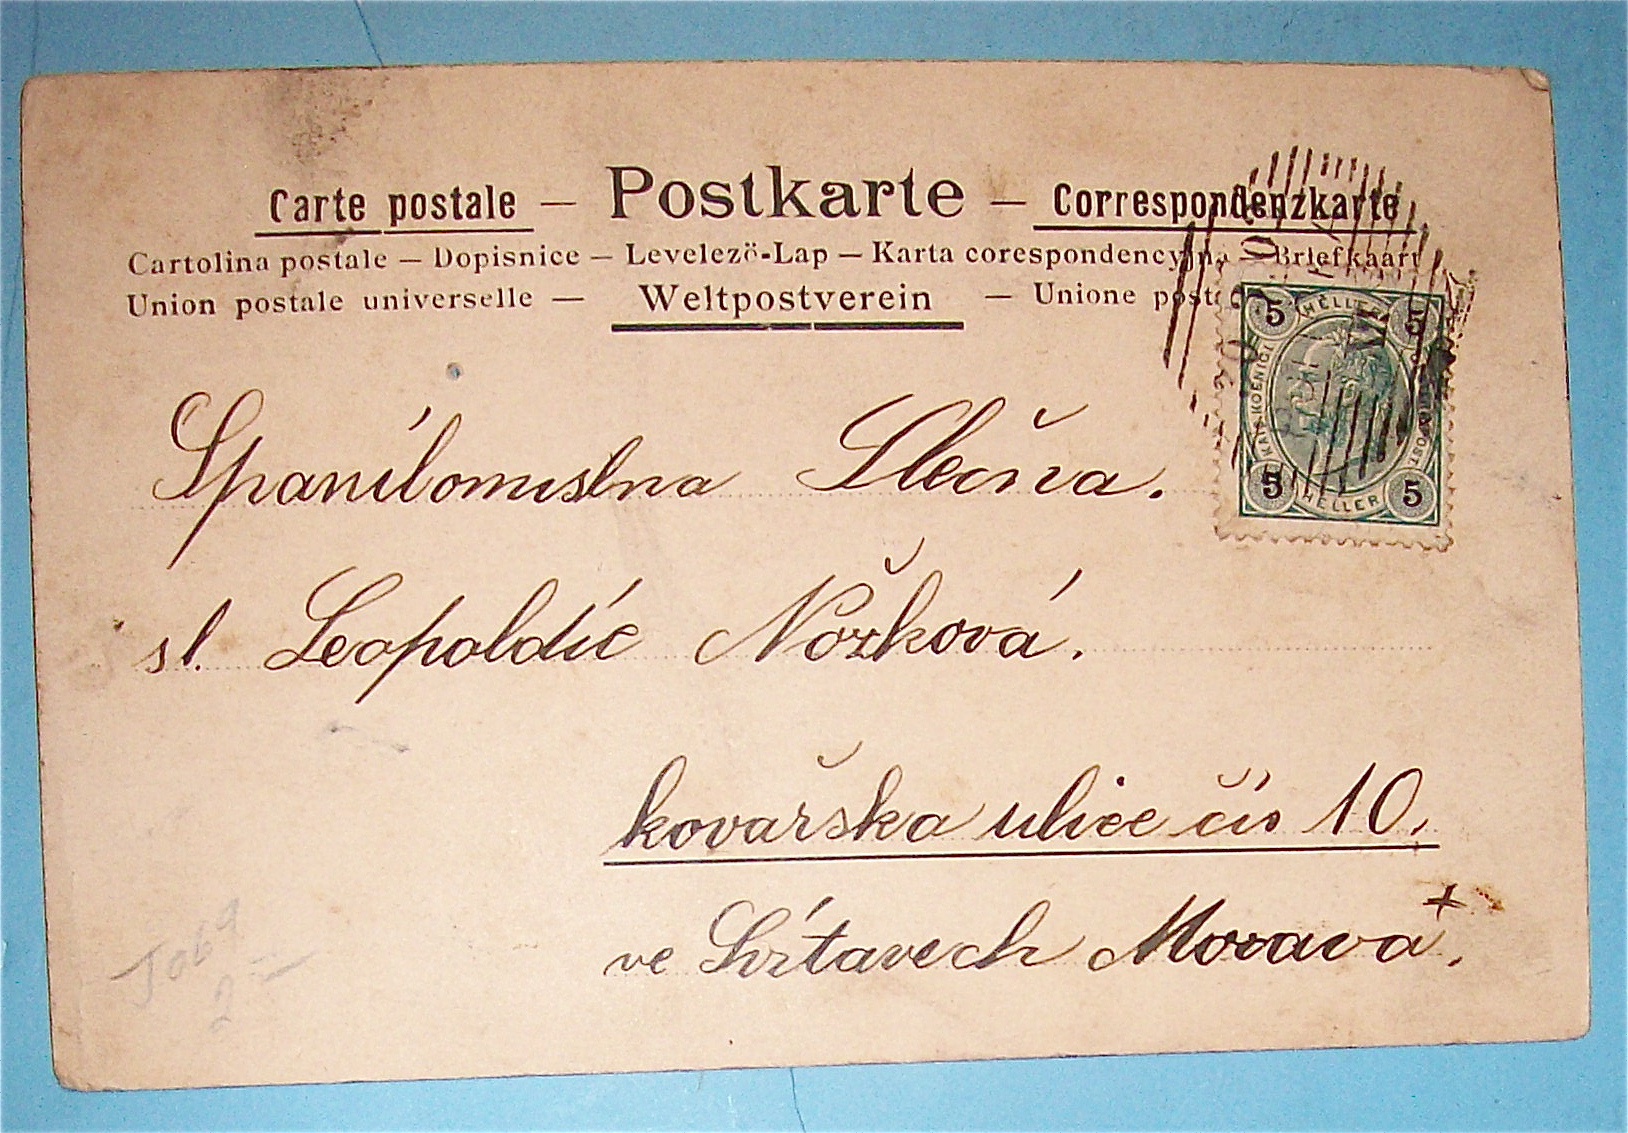 Carte postale — Postkarte — Correspondenzkarte
Cartolina postale — Dopisnice — Levelezö-Lap — Karta corespondencyjna — Briefkaart
Union postale universelle — Weltpostverein — Unione
5 HELLER 5
KAIS. KOENIGL.
5 HELLER 5
Spanilomislna Slečna.
sl. Leopoldíe Nožková.
kovařska ulice čís 10.
ve Svitavech Morava.